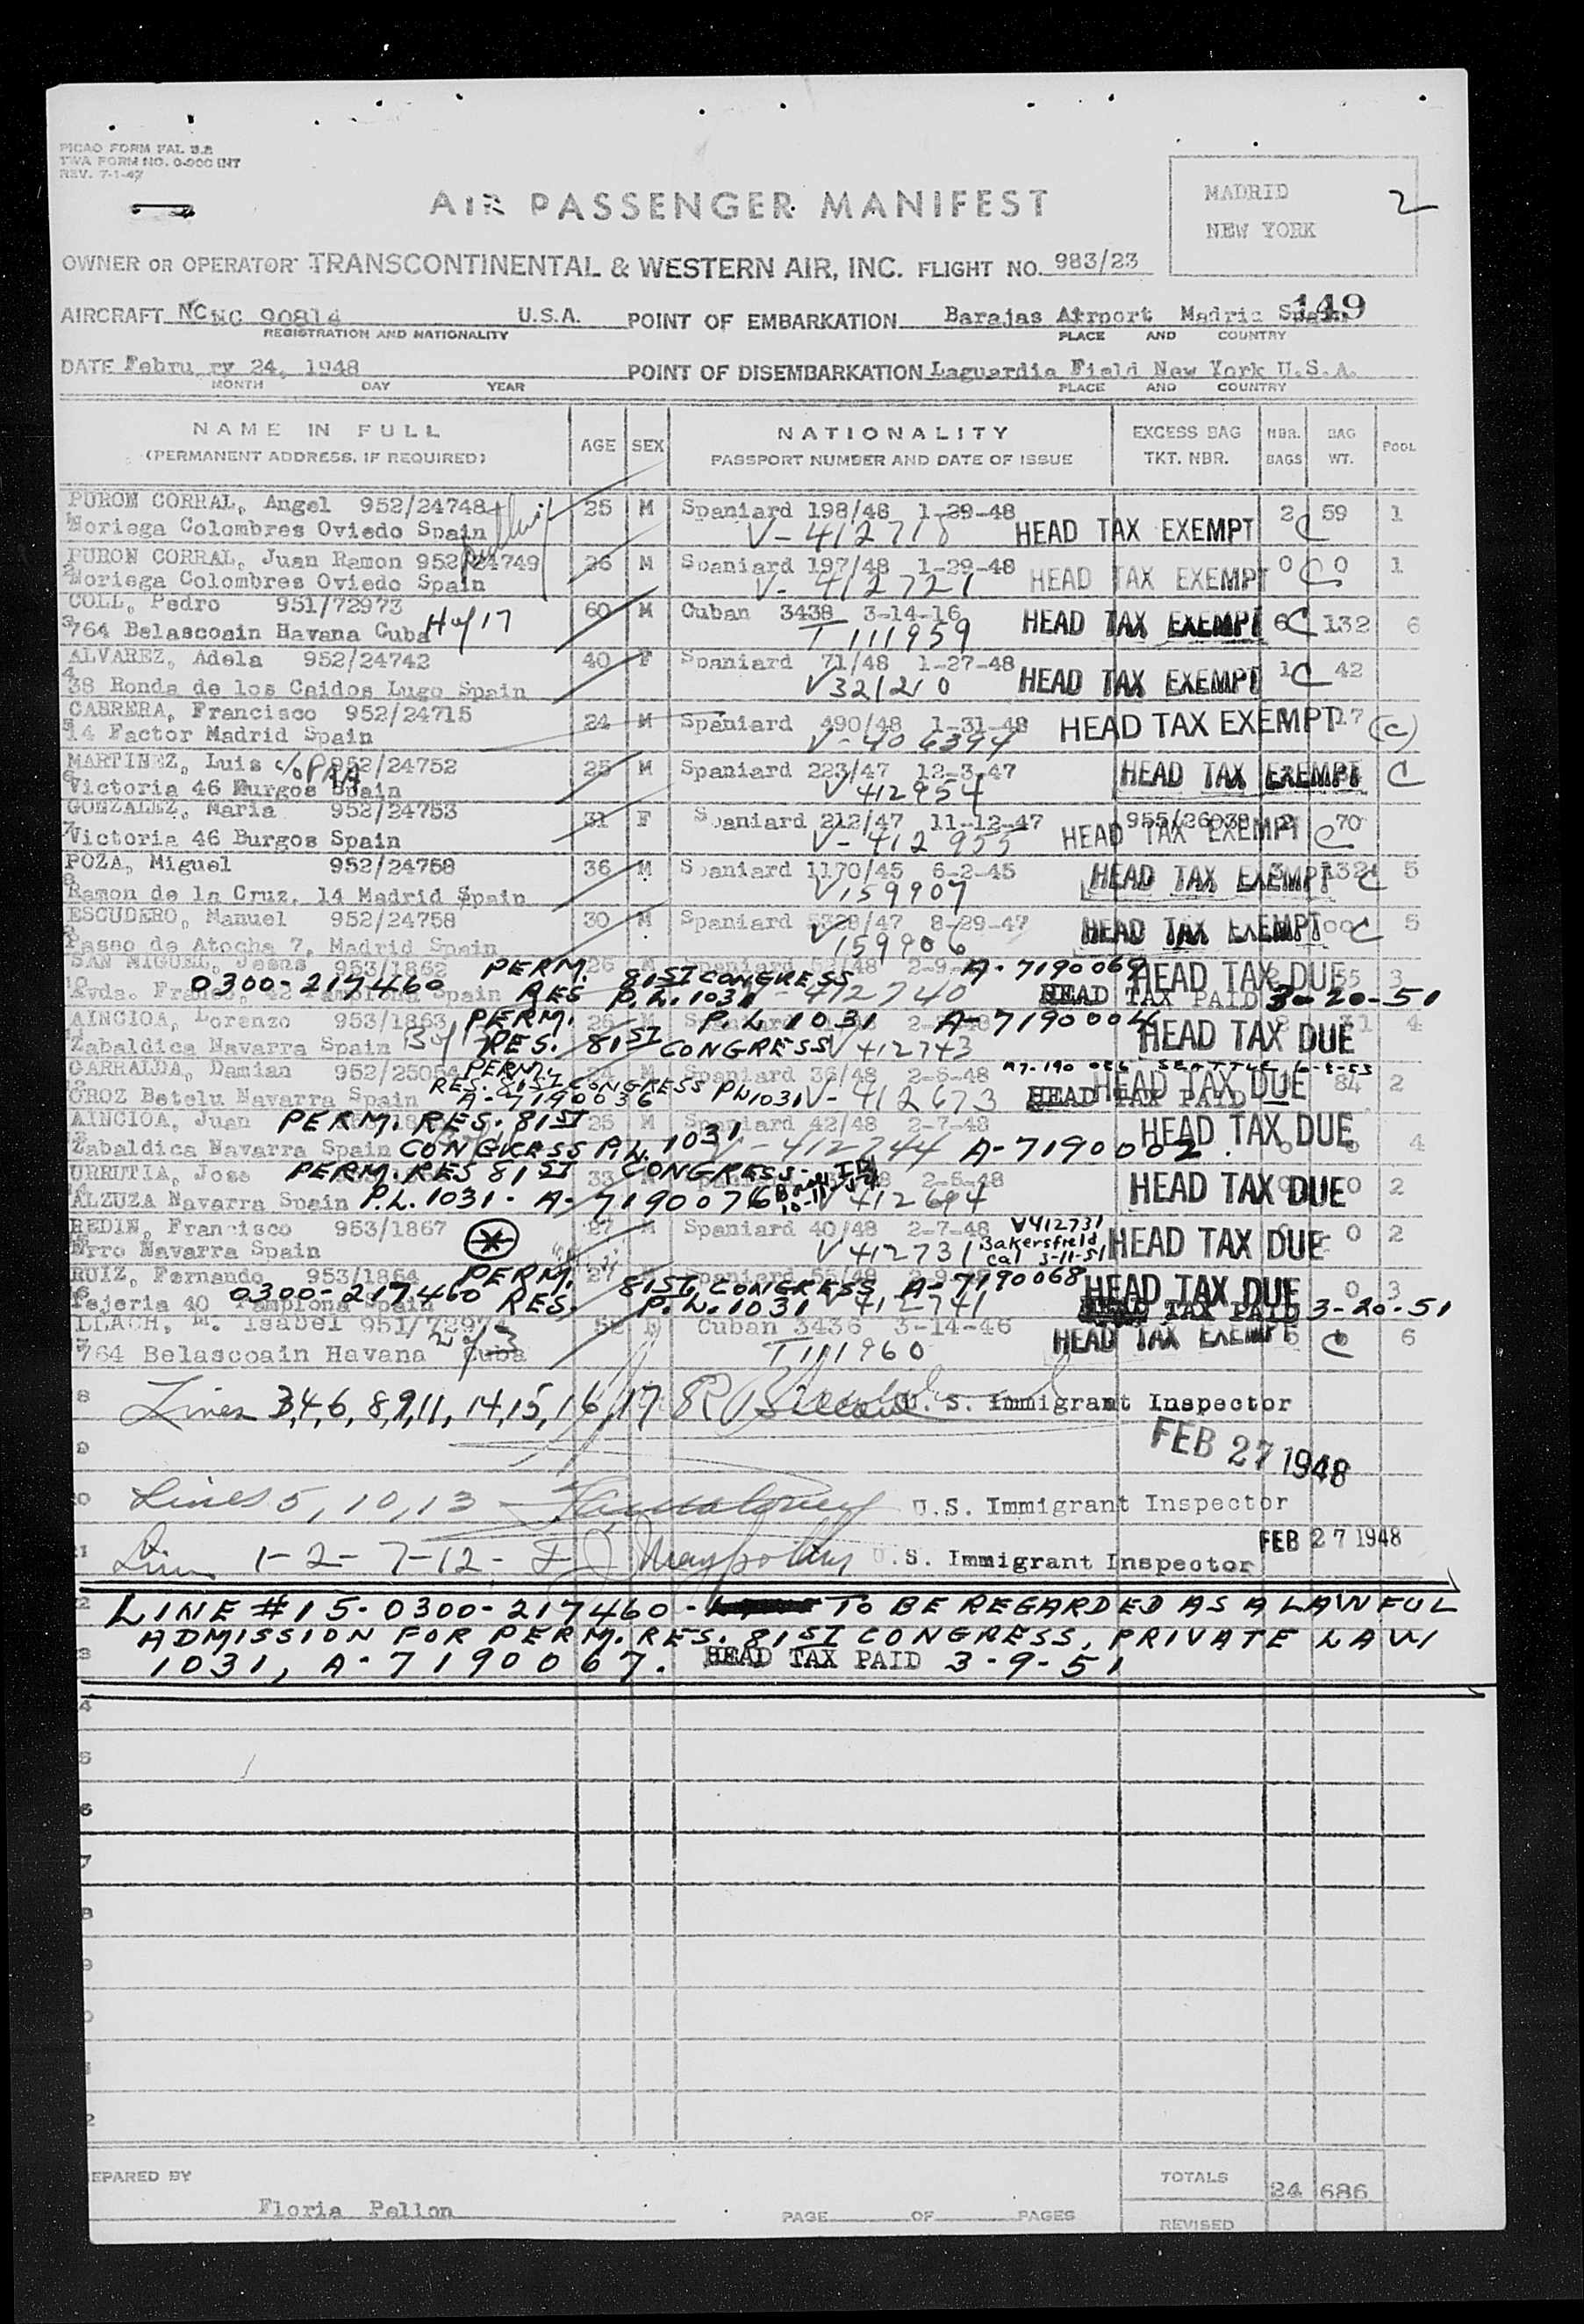 PICAO FORM FAL 3.2
TWA FORM NO. 0-000 INT
REV. 7-1-47
AIR PASSENGER MANIFEST
MADRID
NEW YORK
2
OWNER OR OPERATOR TRANSCONTINENTAL & WESTERN AIR, INC. FLIGHT NO. 983/23
149
AIRCRAFT NC NC 90814 U.S.A. POINT OF EMBARKATION Barajas Airport Madrid Spain
REGISTRATION AND NATIONALITY PLACE AND COUNTRY
DATE Febru ry 24, 1948 POINT OF DISEMBARKATION Laguardia Field New York U.S.A.
MONTH DAY YEAR PLACE AND COUNTRY
NAME IN FULL AGE SEX NATIONALITY EXCESS BAG NBR. BAG POOL
(PERMANENT ADDRESS, IF REQUIRED) PASSPORT NUMBER AND DATE OF ISSUE TKT. NBR. BAGS WT.
PURON CORRAL, Angel 952/24748 25 M Spaniard 198/48 1-29-48 2 59 1
Noriega Colombres Oviedo Spain V-412718 HEAD TAX EXEMPT C
PURON CORRAL, Juan Ramon 952/24749 26 M Spaniard 197/48 1-29-48 0 0 1
Noriega Colombres Oviedo Spain V-412721 HEAD TAX EXEMPT C
COLL, Pedro 951/72973 60 M Cuban 3438 3-14-16 HEAD TAX EXEMPT 6 C 132 6
764 Belascoain Havana Cuba T 111959
ALVAREZ, Adela 952/24742 40 F Spaniard 71/48 1-27-48 1 C 42
38 Ronda de los Caidos Lugo Spain V321210 HEAD TAX EXEMPT
CABRERA, Francisco 952/24715 24 M Spaniard 490/48 1-31-48 HEAD TAX EXEMPT 17 (C)
14 Factor Madrid Spain V-406394
MARTINEZ, Luis c/o PAA 952/24752 25 M Spaniard 223/47 12-3-47 HEAD TAX EXEMPT C
Victoria 46 Burgos Spain V412954
GONZALEZ, Maria 952/24753 31 F Spaniard 212/47 11-12-47 955/26038 2 70
Victoria 46 Burgos Spain V-412955 HEAD TAX EXEMPT C
POZA, Miguel 952/24758 36 M Spaniard 1170/45 6-2-45 HEAD TAX EXEMPT 132 C 5
Ramon de la Cruz, 14 Madrid Spain V159907
ESCUDERO, Manuel 952/24758 30 M Spaniard 5329/47 8-29-47 HEAD TAX EXEMPT C 5
Paseo de Atocha 7, Madrid Spain V159906
SAN MIGUEL, Jesus 953/1862 PERM. 26 81ST CONGRESS A-7190069 HEAD TAX DUE 55 3
0300-217460 Pamplona Spain RES P.L. 1031 412740 HEAD TAX PAID 3-20-51
AINCIOA, Lorenzo 953/1863 PERM. 25 M P.L 1031 A-7190004 HEAD TAX DUE 4
Zabaldica Navarra Spain RES. 81ST CONGRESS V412743
CARRALDA, Damian 952/25054 PERM. Spaniard 36/48 2-6-48 SEATTLE HEAD TAX DUE 84 2
OROZ Betelu Navarra Spain RES. 81ST CONGRESS PL 1031 V-412673 HEAD TAX PAID
A-7190036
AINCIOA, Juan PERM. RES. 81ST 25 M Spaniard 42/48 2-7-48 HEAD TAX DUE
Zabaldica Navarra Spain CONGRESS P.L. 1031 V-412744 A-7190002. 4
URRUTIA, Jose PERM. RES 81ST CONGRESS- 33 HEAD TAX DUE 0 2
ALZUZA Navarra Spain P.L. 1031- A-7190076 V412694
REDIN, Francisco 953/1867 27 M Spaniard 40/48 2-7-48 V412731 HEAD TAX DUE 0 2
Erro Navarra Spain V412731 Bakersfield Cal 3-11-51
RUIZ, Fernando 953/1864 PERM. 27 81ST. CONGRESS A-7190068 HEAD TAX DUE 0 3
Tejeria 40 Pamplona Spain 0300-217460 RES. P.L. 1031 412741 HEAD TAX PAID 3-20-51
LLACH, M. Isabel 951/72974 52 Cuban 3436 3-14-46 HEAD TAX EXEMPT C 6
764 Belascoain Havana Cuba T111960
Lines 3,4,6, 8,9,11, 14,15,16,17 U.S. Immigrant Inspector
FEB 27 1948
Lines 5, 10, 13 U.S. Immigrant Inspector
FEB 27 1948
Lines 1-2-7-12- U.S. Immigrant Inspector
LINE #15-0300-217460- TO BE REGARDED AS A LAWFUL
ADMISSION FOR PERM. RES. 81ST CONGRESS, PRIVATE LAW
1031, A-7190067. HEAD TAX PAID 3-9-51
TOTALS 24 686
EPARED BY Floria Pellon PAGE OF PAGES
REVISED